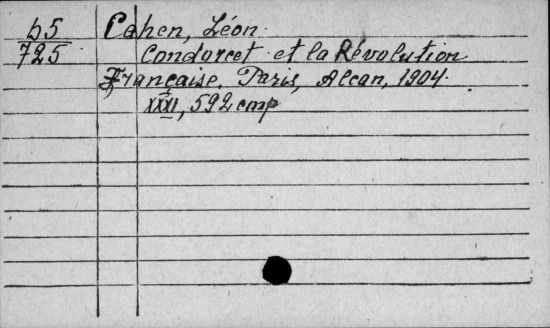 55 Cahen, Léon.
725 Condorcet et la Révolution
Française. Paris, Alcan, 1904.
XXXI, 592 стр